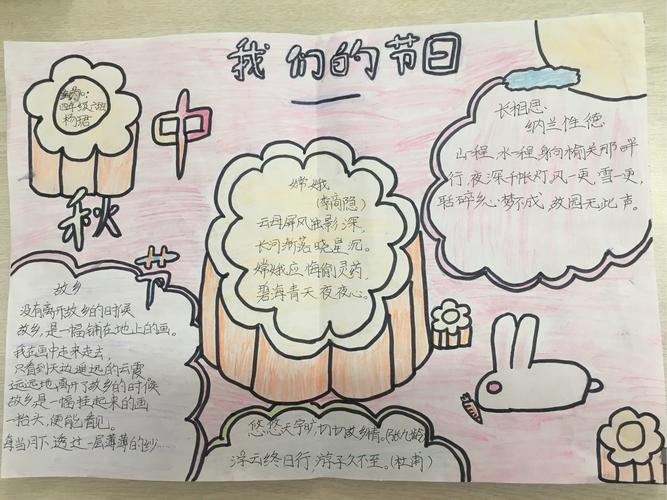 我们的节日
四年级六班
杨珺
中
秋
节
长相思
纳兰性德
山一程,水一程,身向榆关那畔
行,夜深千帐灯,风一更,雪一更,
聒碎乡心梦不成,故园无此声。
嫦娥
(李商隐)
云母屏风烛影深,
长河渐落晓星沉。
嫦娥应悔偷灵药,
碧海青天夜夜心。
故乡
没有离开故乡的时候
故乡,是一幅铺在地上的画。
我在画中走来走去,
只看到天边遥远的云霞
远远地离开了故乡的时候
故乡是一幅挂起来的画
一抬头,便能看见。
每当月下,透过一层薄薄的纱……
悠悠天宇旷,切切故乡情。(张九龄)
浮云终日行,游子久不至。(杜甫)